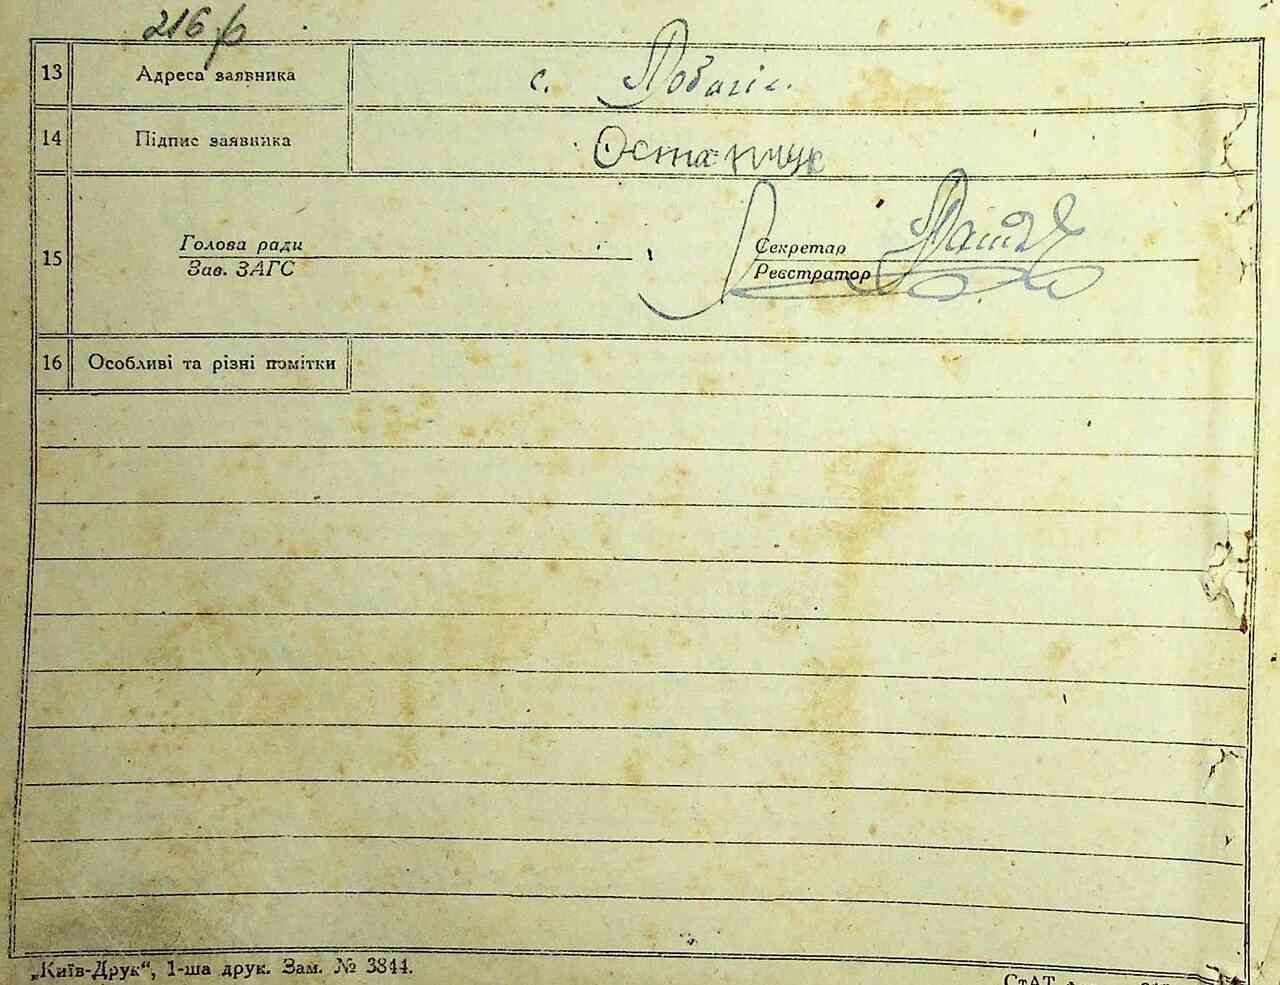 216 
13 Адреса заявника с.
14 Підпис заявника Остапчук
Голова ради Секретар
15
Зав. ЗАГС Реєстратор
16 Особливі та різні помітки
„Київ-Друк“, 1-ша друк. Зам. № 3844.
СтАТ